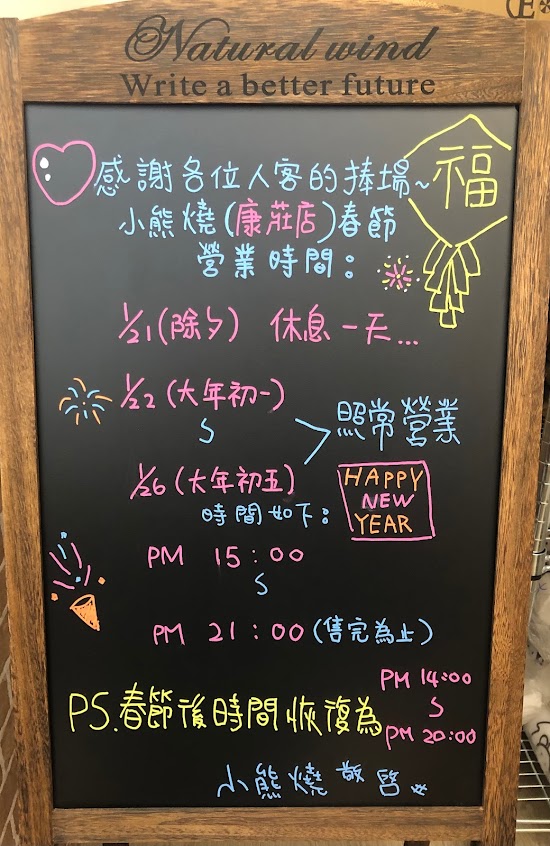 Natural wind
Write a better future
福
感謝各位人客的捧場~
小熊燒(康莊店)春節
營業時間：
1/21(除夕) 休息一天...
1/22(大年初一)
S
照常營業
1/26(大年初五)
時間如下：
HAPPY
NEW
YEAR
PM 15:00
S
PM 21:00(售完為止)
PS.春節後時間恢復為
PM 14:00
S
PM 20:00
小熊燒 敬啓